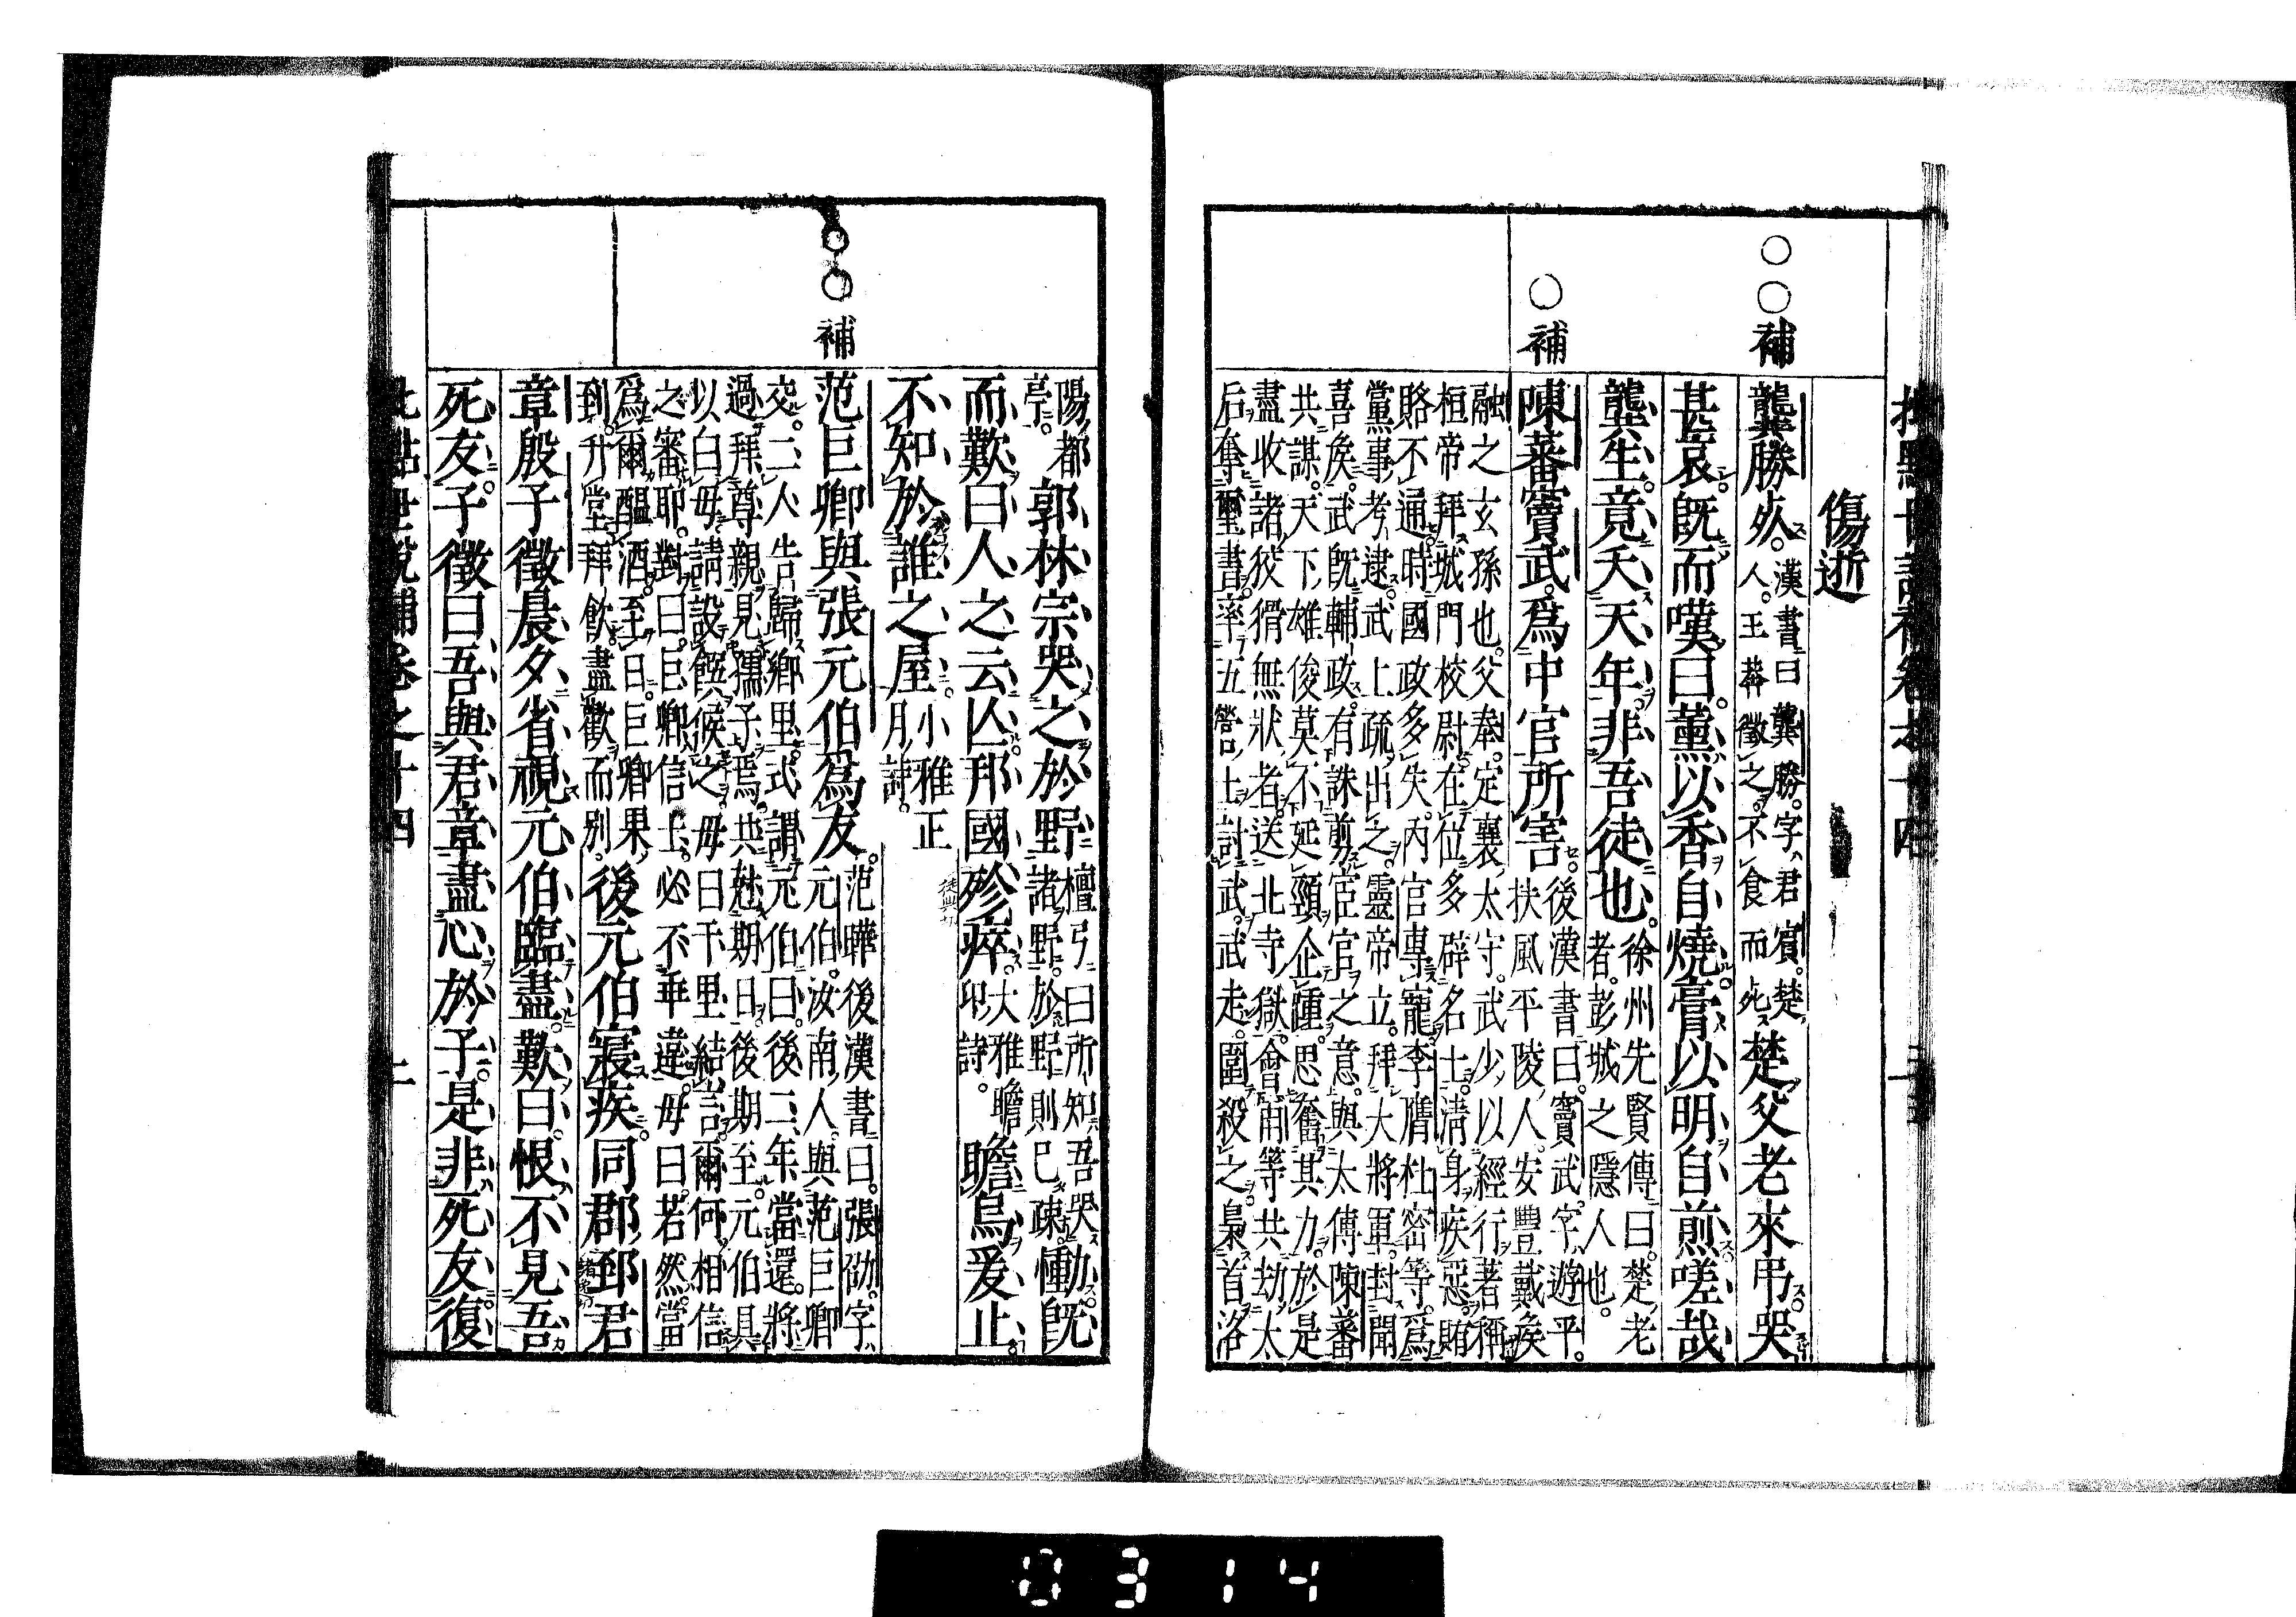 傷逝
○○補
龔勝死。漢書曰龔勝。字君賓。楚
人。王莽徵之。不食而死楚父老來弔哭
甚哀。既而嘆曰。薰以香自燒。膏以明自煎嗟哉
龔生。竟夭天年。非吾徒也。徐州先賢傳曰。楚老
者。彭城之隱人也。
○補
陳蕃竇武。爲中官所害。後漢書曰。竇武。字游平。
扶風平陵人。安豐戴矦
融之玄孫也。父奉。定襄太守。武少以經行著稱
桓帝拜城門校尉在位多辟名士。淸身疾惡。賄
賂不通。時國政多失。內官專寵李膺杜密等。爲
黨事考逮。武上疏出之。靈帝立。拜大將軍。封聞
喜矦。武既輔政。有誅剪宦官之意。與太傅陳蕃
共謀。天下雄俊莫不延頸企踵。思奮其力。於是
盡收諸狡猾無狀者。送北寺獄。會甫等共劫太
后奪璽書。率五營士討武。武走。圍殺之。梟首洛
陽都
亭。郭林宗哭之於野檀弓曰所知吾哭
諸野。於野則已疎。慟既
而歎曰。人之云亾。邦國殄瘁。大雅瞻
卬詩。瞻烏爰止。
不知於誰之屋。小雅正
月詩。
○○補
范巨卿與張元伯爲友。范曄後漢書曰。張劭。字
元伯。汝南人。與范巨卿
交。二人告歸鄕里。式謂元伯曰。後二年當還。將
過拜尊親見孺子焉。共尅期日。後期至。元伯具
以白母請設饌候之。母曰千里結言。爾何相信
之審耶。對曰。巨卿信士。必不乖違。母曰。若然。當
爲爾醞酒。至日。巨卿果
到。升堂拜飮。盡歡而別。後元伯寢疾。同郡郅君
章殷子徵晨夕省視元伯臨盡。歎曰。恨不見吾
死友。子徵曰吾與君章盡心於子。是非死友復
世說補卷之十四